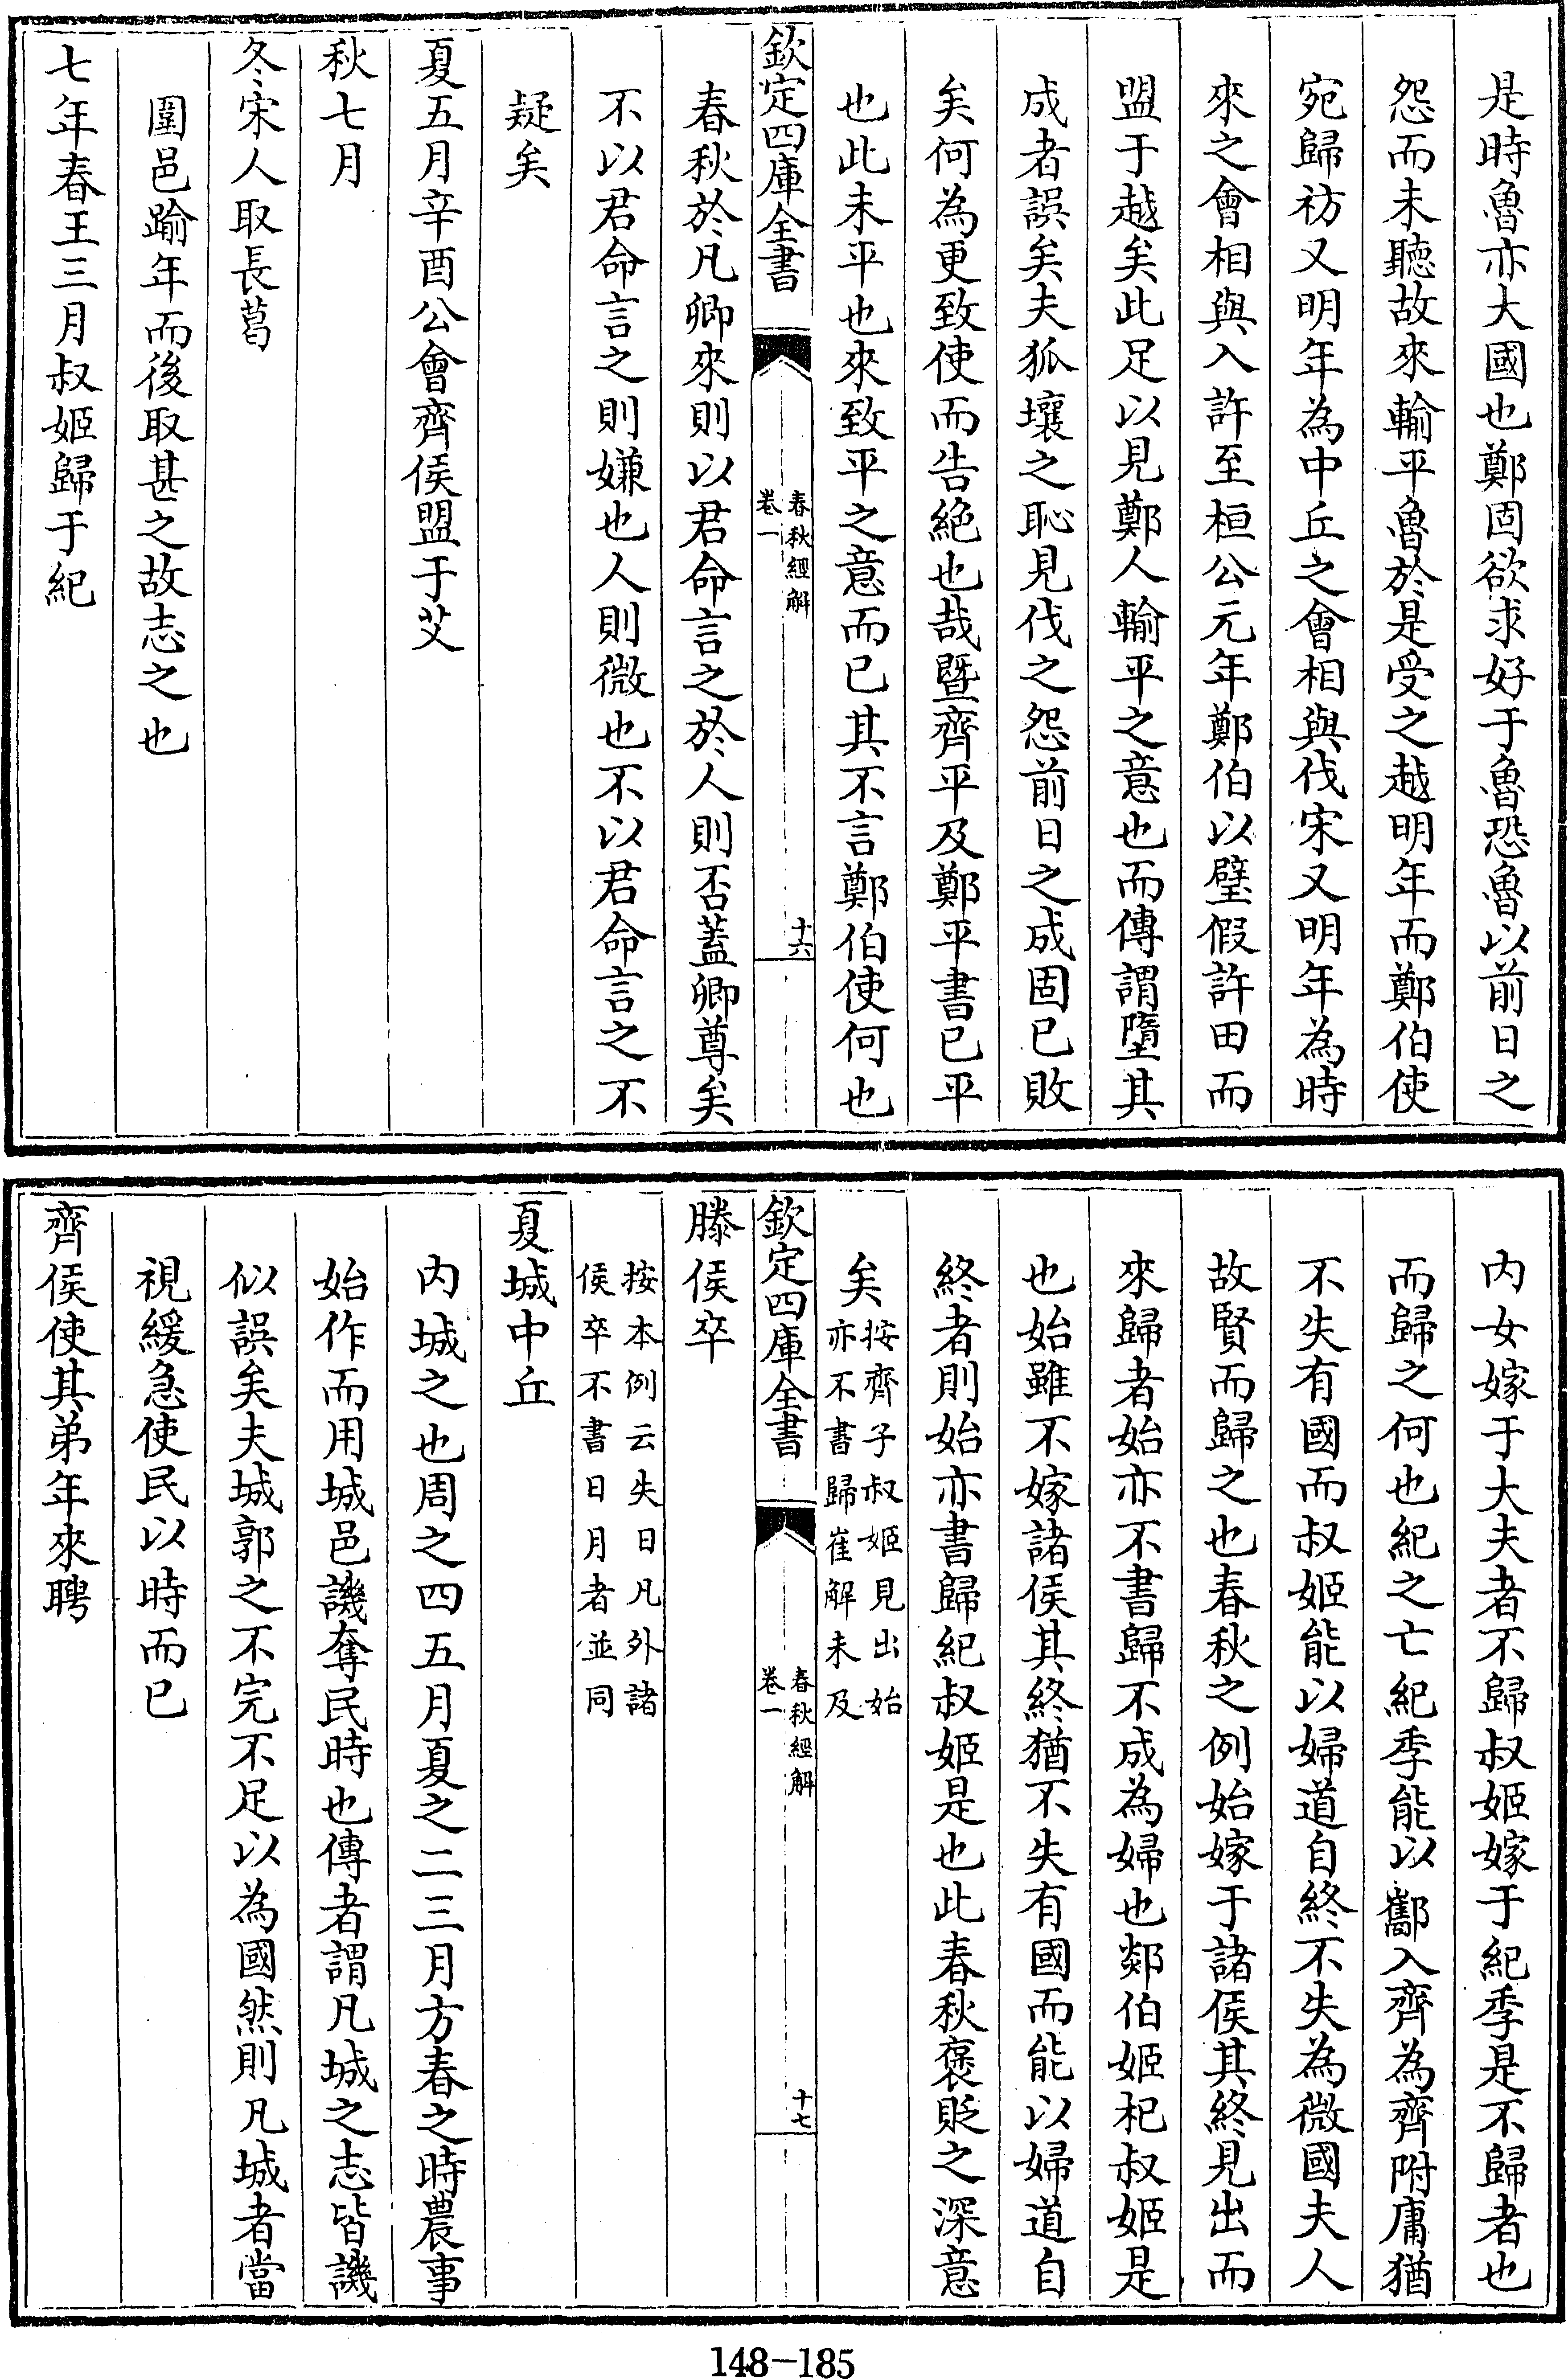 是時魯亦大國也鄭固欲求好于魯恐魯以前日之
怨而未聽故來輸平魯於是受之越明年而鄭伯使
宛歸祊又明年為中丘之會相與伐宋又明年為時
來之會相與入許至桓公元年鄭伯以璧假許田而
盟于越矣此足以見鄭人輸平之意也而傳謂墮其
成者誤矣夫狐壤之恥見伐之怨前日之成固已敗
矣何為更致使而告絶也哉暨齊平及鄭平書已平
也此未平也來致平之意而已其不言鄭伯使何也
欽定四庫全書
春秋經解
卷一
十六
春秋於凡卿來則以君命言之於人則否蓋卿尊矣
不以君命言之則嫌也人則微也不以君命言之不
疑矣
夏五月辛酉公會齊侯盟于艾
秋七月
冬宋人取長葛
圍邑踰年而後取甚之故志之也
七年春王三月叔姬歸于紀
内女嫁于大夫者不歸叔姬嫁于紀季是不歸者也
而歸之何也紀之亡紀季能以酅入齊為齊附庸猶
不失有國而叔姬能以婦道自終不失為微國夫人
故賢而歸之也春秋之例始嫁于諸侯其終見出而
來歸者始亦不書歸不成為婦也郯伯姬杞叔姬是
也始雖不嫁諸侯其終猶不失有國而能以婦道自
終者則始亦書歸紀叔姬是也此春秋褒貶之深意
矣按齊子叔姬見出始
亦不書歸崔解未及
欽定四庫全書
春秋經解
卷一
十七
滕侯卒
按本例云失日凡外諸
侯卒不書日月者並同
夏城中丘
内城之也周之四五月夏之二三月方春之時農事
始作而用城邑譏奪民時也傳者謂凡城之志皆譏
似誤矣夫城郭之不完不足以為國然則凡城者當
視緩急使民以時而已
齊侯使其弟年來聘
148-185